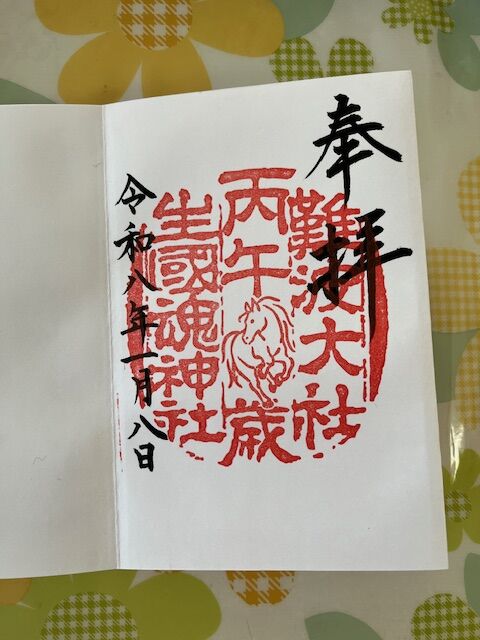 奉拝
難波大社
丙午歳
生國魂神社
令和八年一月八日